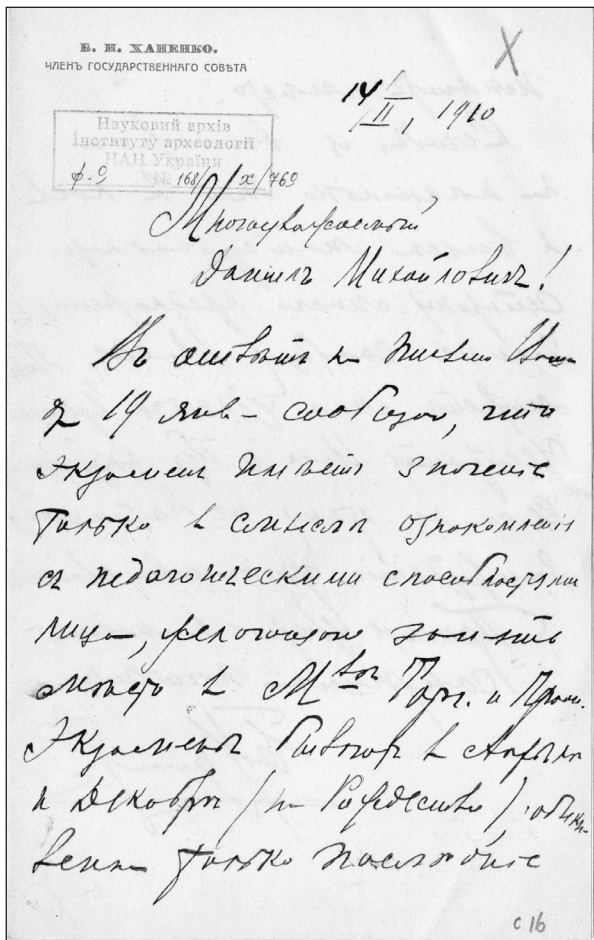 Б. И. ХАНЕНКО.
ЧЛЕНЪ ГОСУДАРСТВЕННАГО СОВѢТА
X
14/II, 1910
Науковий архів
Інституту археології
НАН України
ф. 9 № 168/х/769
Многоуважаемый
Данiилъ Михайловичъ!
Въ отвѣтъ на письмо Ваше
от 19 янв. сообщаю, что
экзаменъ имѣетъ значенiе
только в смыслѣ ознакомленiя
съ педагогическими способностями
лица, желающаго занять
мѣсто в М-во Торг. и Пром.
Экзамены бываютъ в Апрѣлѣ
и Декабрѣ (на Рождество),
только послѣднiе
с 16